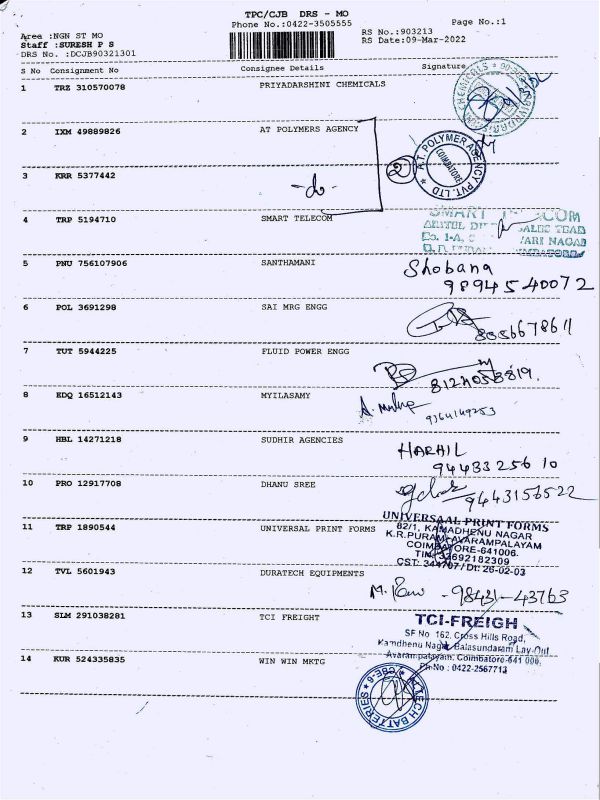 TPC/CJB DRS - MO
Phone No.:0422-3505555
Page No.:1
Area :NGN ST MO
RS No.:903213
Staff :SURESH P S
RS Date:09-Mar-2022
DRS No. :DCJB90321301
S No Consignment No Consignee Details Signature
1 TRZ 310570078 PRIYADARSHINI CHEMICALS
2 IXM 49889826 AT POLYMERS AGENCY
A.T. POLYMER AGENCY PVT. LTD
COIMBATORE
2
3 KRR 5377442 -do-
4 TRP 5194710 SMART TELECOM
SMART TELECOM
5 PNU 756107906 SANTHAMANI
Shobana
9894540072
6 POL 3691298 SAI MRG ENGG
7 TUT 5944225 FLUID POWER ENGG
8 EDQ 16512143 MYILASAMY
9364149253
9 HBL 14271218 SUDHIR AGENCIES
94433 256 10
10 PRO 12917708 DHANU SREE
9443156522
11 TRP 1890544 UNIVERSAL PRINT FORMS
UNIVERSAAL PRINT FORMS
82/1, KAMADHENU NAGAR
K.R.PURAM, AVARAMPALAYAM
COIMBATORE-641006.
CST: 344707/Dt: 26-02-03
12 TVL 5601943 DURATECH EQUIPMENTS
98431-43763
13 SLM 291038281 TCI FREIGHT
TCI-FREIGH
SF No 162, Cross Hills Road,
Kamdhenu Nagar Balasundaram Lay-Out
Avarampalayam, Coimbatore-641 006.
Ph No : 0422-2567713
14 KUR 524335835 WIN WIN MKTG
TECH BATTERIES
CBE-6